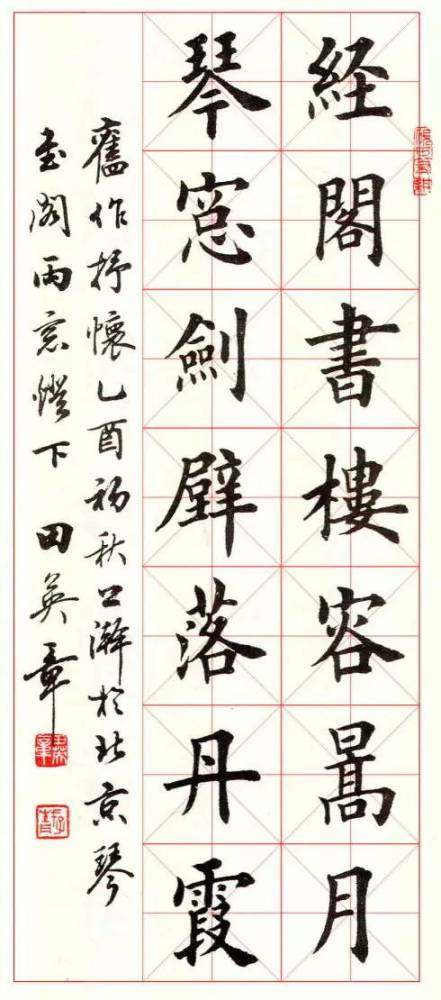 経閣書樓容暠月
琴窓劍壁落丹霞
舊作抒懷乙酉初秋上澣於北京琴
書閣雨窓燈下田英章